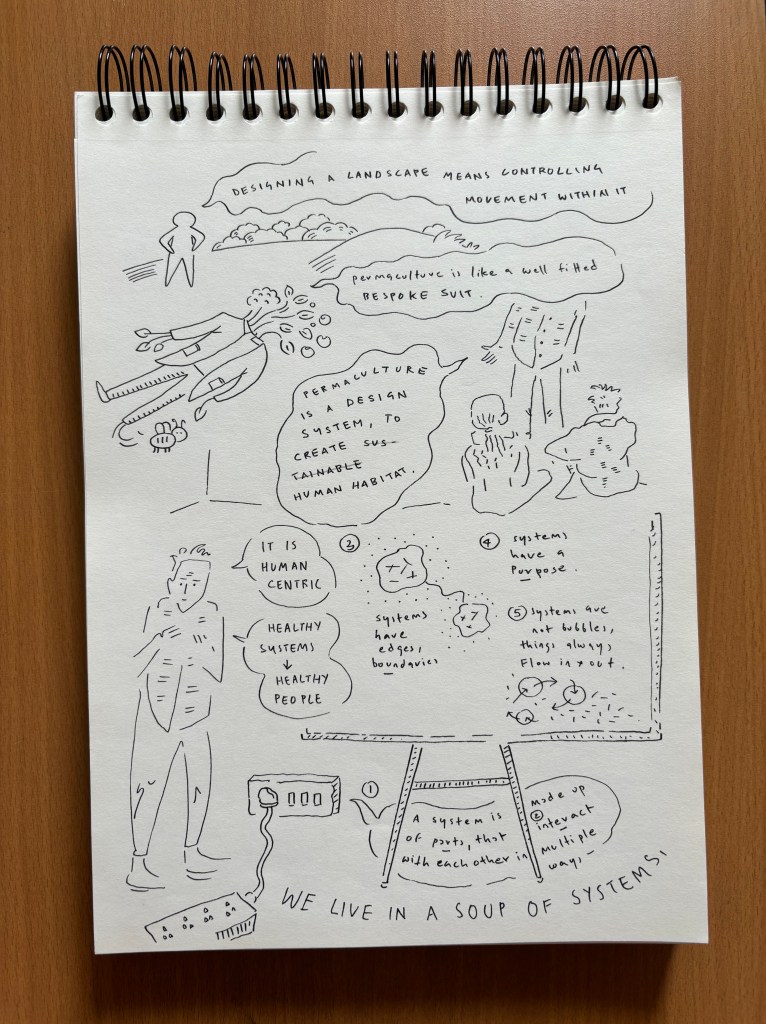 DESIGNING A LANDSCAPE MEANS CONTROLLING
MOVEMENT WITHIN IT
permaculture is like a well fitted
BESPOKE SUIT.
PERMACULTURE
IS A DESIGN
SYSTEM, TO
CREATE SUS-
TAINABLE
HUMAN HABITAT.
IT IS
HUMAN
CENTRIC
HEALTHY
SYSTEMS
↓
HEALTHY
PEOPLE
③
systems
have
edges,
boundaries
④ systems
have a
purpose.
⑤ systems are
not bubbles,
things always
Flow in & out.
①
A system is made up
of parts, that ② interact
with each other in multiple
ways
WE LIVE IN A SOUP OF SYSTEMS.